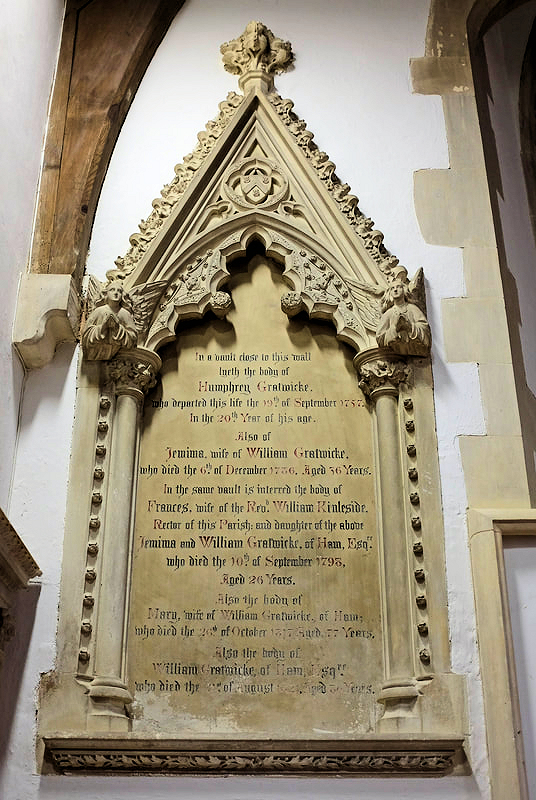 In a vault close to this wall
lyeth the body of
Humphrey Gratwicke,
who departed this life the 19th of September 1757.
In the 20th Year of his age.
Also of
Jemima, wife of William Gratwicke,
who died the 6th of December 1756, Aged 36 Years.
In the same vault is interred the body of
Frances, wife of the Revd. William Kinleside,
Rector of this Parish; and daughter of the above
Jemima and William Gratwicke, of Ham, Esqre.
who died the 10th of September 1793,
Aged 26 Years.
Also the body of
Mary, wife of William Gratwicke, of Ham;
who died the of October Aged 77 Years,
Also the body of
William Gratwicke, of Ham, Esqre.
who died the of August Aged Years.